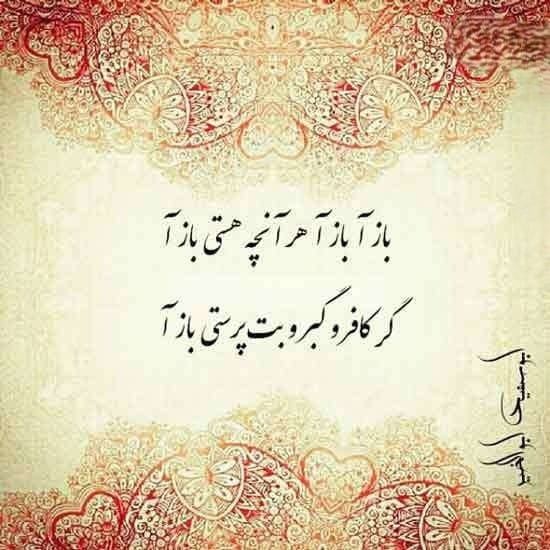 باز آ باز آ هر آنچه هستی باز آ
گر کافر و گبر و بت پرستی باز آ
ابوسعید ابوالخیر